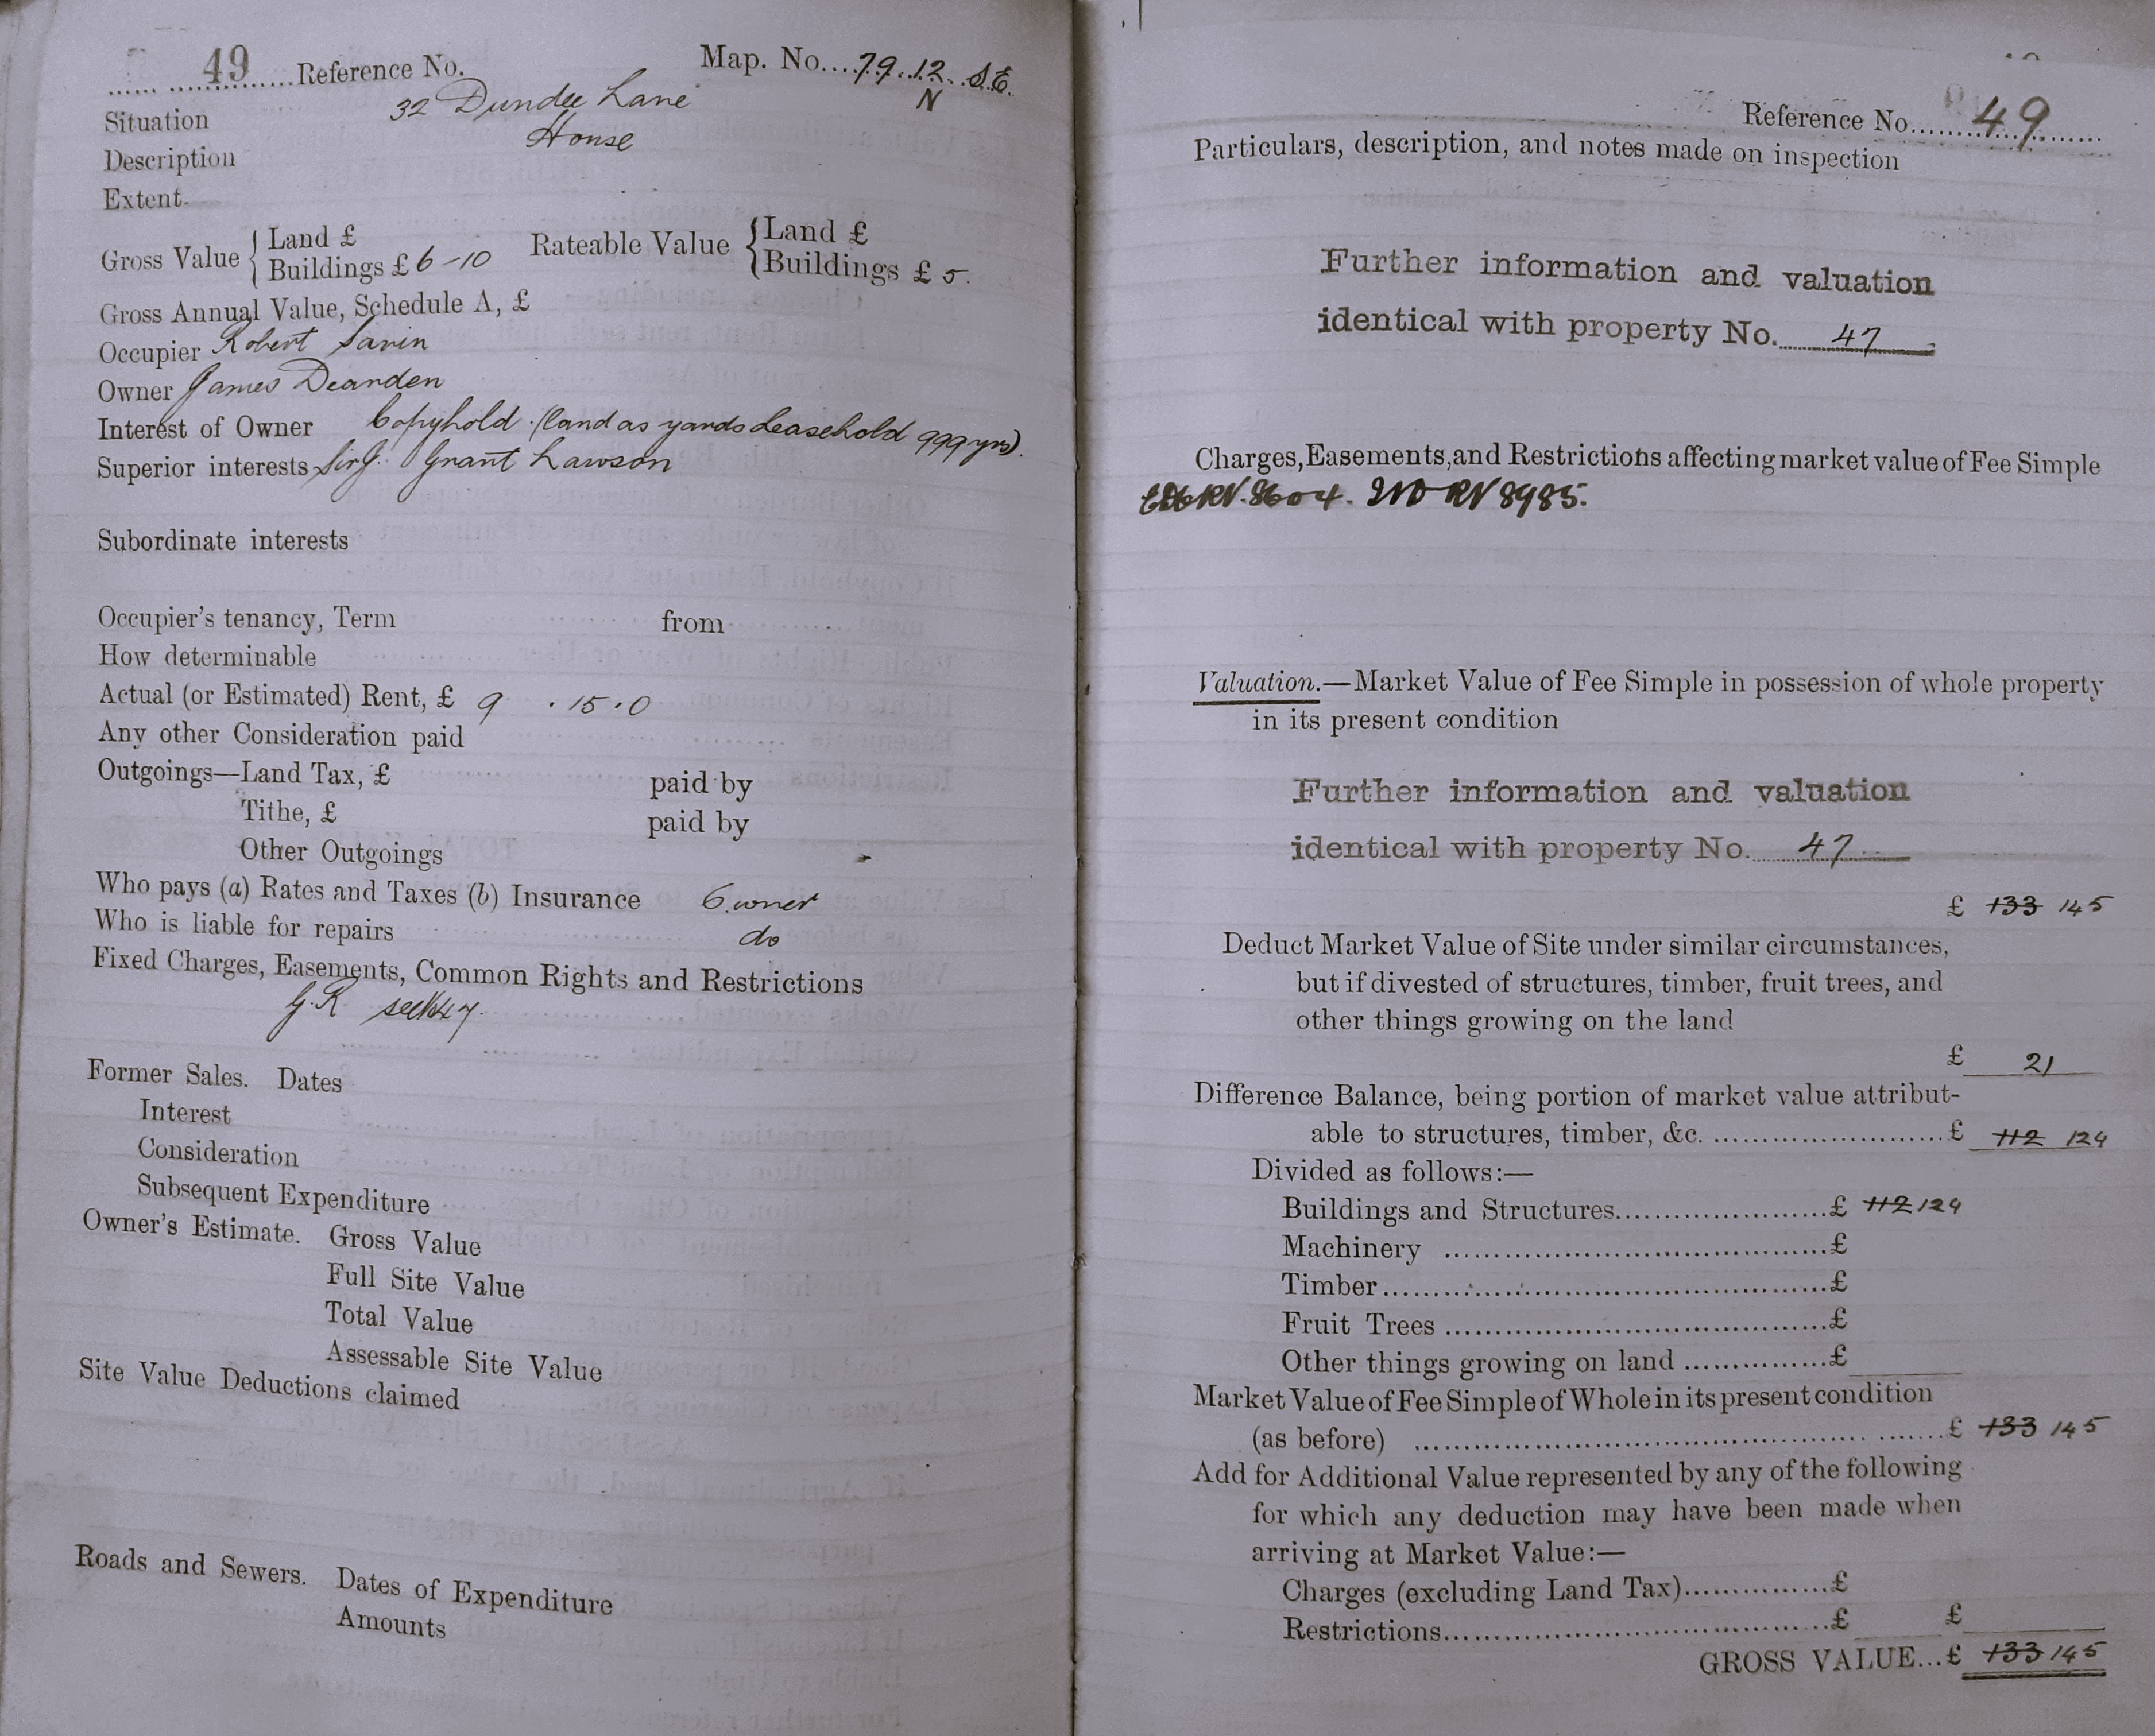 49 Reference No. Map. No. 79.12. S.E.
N
Situation 32 Dundee Lane
Description House
Extent
Gross Value { Land £
Buildings £ 6-10
Rateable Value { Land £
Buildings £ 5.
Gross Annual Value, Schedule A, £
Occupier Robert
Owner James Dearden
Interest of Owner Copyhold (land as yards Leasehold 999 yrs).
Superior interests Sir J. Grant Lawson
Subordinate interests
Occupier's tenancy, Term from
How determinable
Actual (or Estimated) Rent, £ 9 . 15 . 0
Any other Consideration paid
Outgoings—Land Tax, £ paid by
Tithe, £ paid by
Other Outgoings
Who pays (a) Rates and Taxes (b) Insurance Owner
Who is liable for repairs do
Fixed Charges, Easements, Common Rights and Restrictions
G.R see 47.
Former Sales. Dates
Interest
Consideration
Subsequent Expenditure
Owner's Estimate. Gross Value
Full Site Value
Total Value
Assessable Site Value
Site Value Deductions claimed
Roads and Sewers. Dates of Expenditure
Amounts
Reference No. 49
Particulars, description, and notes made on inspection
Further information and valuation
identical with property No. 47
Charges, Easements, and Restrictions affecting market value of Fee Simple
RV. 8604. RV 8985.
Valuation.—Market Value of Fee Simple in possession of whole property
in its present condition
Further information and valuation
identical with property No. 47
£ 133 145
Deduct Market Value of Site under similar circumstances,
but if divested of structures, timber, fruit trees, and
other things growing on the land
£ 21
Difference Balance, being portion of market value attribut-
able to structures, timber, &c. £ 112 124
Divided as follows:—
Buildings and Structures £ 112 124
Machinery £
Timber £
Fruit Trees £
Other things growing on land £
Market Value of Fee Simple of Whole in its present condition
(as before) £ 133 145
Add for Additional Value represented by any of the following
for which any deduction may have been made when
arriving at Market Value:—
Charges (excluding Land Tax) £
Restrictions £ £
GROSS VALUE... £ 133 145